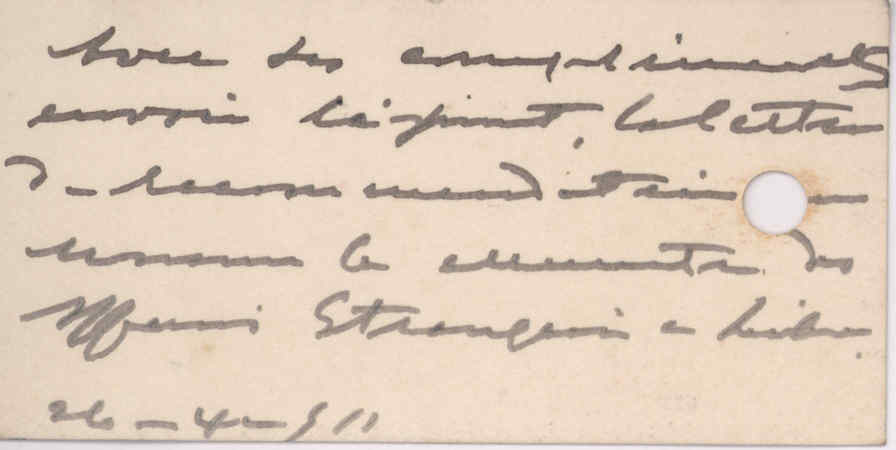 avec ses compliments
envoie ci-joint, la lettre
de recommendation
le ministre des
Affaires Etrangères à Lisbonne
26-4-911